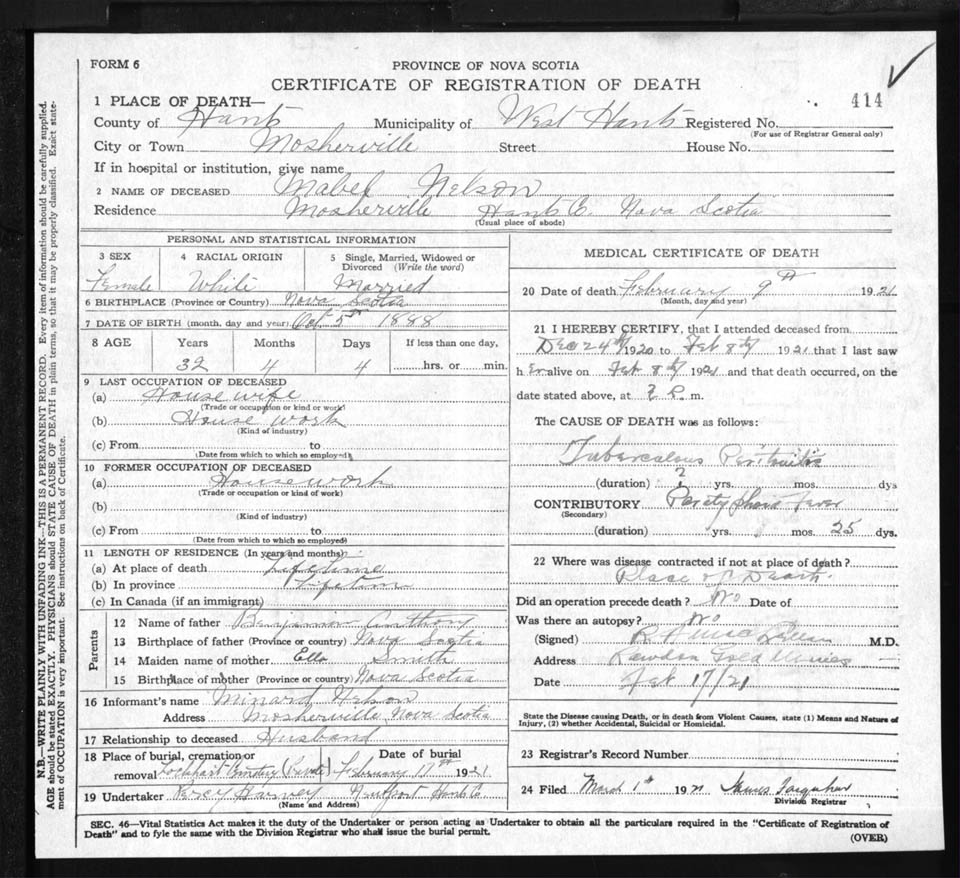 FORM 6
PROVINCE OF NOVA SCOTIA
CERTIFICATE OF REGISTRATION OF DEATH
414
1 PLACE OF DEATH—
County of Hants Municipality of West Hants Registered No.
(For use of Registrar General only)
City or Town Mosherville Street House No.
If in hospital or institution, give name
2 NAME OF DECEASED Mabel Nelson
Residence Mosherville Hants Co. Nova Scotia
(Usual place of abode)
PERSONAL AND STATISTICAL INFORMATION
3 SEX 4 RACIAL ORIGIN 5 Single, Married, Widowed or
Divorced (Write the word)
Female White Married
6 BIRTHPLACE (Province or Country) Nova Scotia
7 DATE OF BIRTH (month, day and year) Oct 5th 1888
8 AGE Years Months Days If less than one day,
32 4 4 hrs. or min.
9 LAST OCCUPATION OF DECEASED
(a) House wife
(Trade or occupation or kind or work)
(b) House work
(Kind of industry)
(c) From to
(Date from which to which so employed)
10 FORMER OCCUPATION OF DECEASED
(a) Housework
(Trade or occupation or kind of work)
(b)
(Kind of industry)
(c) From to
(Date from which to which so employed)
11 LENGTH OF RESIDENCE (In years and months)
(a) At place of death Lifetime
(b) In province Lifetime
(c) In Canada (if an immigrant)
Parents
12 Name of father Benjamin Anthony
13 Birthplace of father (Province or country) Nova Scotia
14 Maiden name of mother Ella Smith
15 Birthplace of mother (Province or country) Nova Scotia
16 Informant's name Minard Nelson
Address Mosherville, Nova Scotia
17 Relationship to deceased Husband
18 Place of burial, cremation or Date of burial
removal Lockhart Cemetery February 1921
19 Undertaker Percy Harvey Newport Hants Co
(Name and Address)
MEDICAL CERTIFICATE OF DEATH
20 Date of death February 9th 1921
(Month, day and year)
21 I HEREBY CERTIFY, that I attended deceased from
Dec 24th 1920 to Feb 8th 1921 that I last saw
h er alive on Feb 8th 1921 and that death occurred, on the
date stated above, at P. m.
The CAUSE OF DEATH was as follows:
Tuberculous Peritonitis
(duration) ? yrs. mos. dys
CONTRIBUTORY Paratyphoid Fever
(Secondary)
(duration) yrs. mos. 25 dys.
22 Where was disease contracted if not at place of death?
Place of Death.
Did an operation precede death? No Date of
Was there an autopsy? No
(Signed) M.D.
Address Rawdon Gold Mines
Date Feb 17/21
State the Disease causing Death, or in death from Violent Causes, state (1) Means and Nature of
Injury, (2) whether Accidental, Suicidal or Homicidal.
23 Registrar's Record Number
24 Filed March 1st 1921 James Farquhar
Division Registrar
SEC. 46—Vital Statistics Act makes it the duty of the Undertaker or person acting as Undertaker to obtain all the particulars required in the "Certificate of Registration of
Death" and to fyle the same with the Division Registrar who shall issue the burial permit.
(OVER)
N.B.—WRITE PLAINLY WITH UNFADING INK—THIS IS A PERMANENT RECORD. Every item of information should be carefully supplied.
AGE should be stated EXACTLY. PHYSICIANS should STATE CAUSE OF DEATH in plain terms, so that it may be properly classified. Exact state-
ment of OCCUPATION is very important. See instructions on back of Certificate.